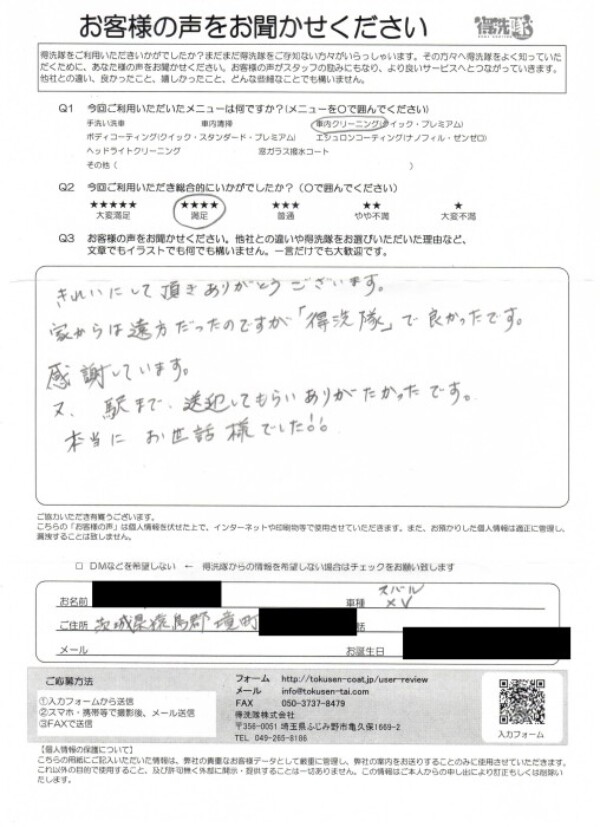 お客様の声をお聞かせください
得洗隊
得洗隊をご利用いただきいかがでしたか?まだまだ得洗隊をご存知ない方々がいらっしゃいます。その方々へ得洗隊をよく知っていた
だくために、あなた様の声をお聞かせください。お客様の声がスタッフの励みにもなり、より良いサービスへとつながっていきます。
他社との違い、良かったこと、嬉しかったこと、どんな些細なことでも構いません。
Q1 今回ご利用いただいたメニューは何ですか?(メニューを○で囲んでください)
手洗い洗車 車内清掃 車内クリーニング(クイック・プレミアム)
ボディコーティング(クイック・スタンダード・プレミアム) エシュロンコーティング(ナノフィル・ゼンゼロ)
ヘッドライトクリーニング 窓ガラス撥水コート
その他( )
Q2 今回ご利用いただき総合的にいかがでしたか?(○で囲んでください)
★★★★★ ★★★★ ★★★ ★★ ★
大変満足 満足 普通 やや不満 大変不満
Q3 お客様の声をお聞かせください。他社との違いや得洗隊をお選びいただいた理由など、
文章でもイラストでも何でも構いません。一言だけでも大歓迎です。
きれいにして頂きありがとうございます。
家からは遠方だったのですが「得洗隊」で良かったです。
感謝しています。
又、駅まで、送迎してもらいありがたかったです。
本当にお世話様でした!!
ご協力いただき有難うございます。
こちらの「お客様の声」は個人情報を伏せた上で、インターネットや印刷物等で使用させていただきます。また、お預かりした個人情報は適正に管理し、
漏洩することは致しません。
□ DMなどを希望しない ← 得洗隊からの情報を希望しない場合はチェックをお願い致します
お名前 車種 スバル
XV
ご住所 茨城県猿島郡境町 話
メール お誕生日
ご応募方法
①入力フォームから送信
②スマホ・携帯等で撮影後、メール送信
③FAXで送信
フォーム http://tokusen-coat.jp/user-review
メール info@tokusen-tai.com
FAX 050-3737-8479
得洗隊株式会社
〒356-0051 埼玉県ふじみ野市亀久保1669-2
TEL 049-265-8186
入力フォーム
【個人情報の保護について】
こちらの用紙にご記入いただいた情報は、弊社の貴重なお客様データとして厳重に管理し、弊社の案内をお送りすることのみに使用させていただきます。
これ以外の目的で使用すること、及び許可無く外部に開示・提供することは一切ありません。この情報はご本人からの申し出により訂正もしくは削除い
たします。